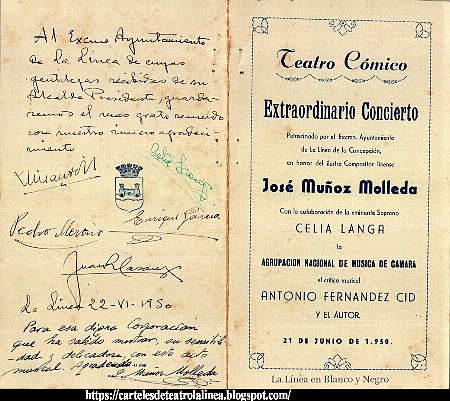 Al Excmo Ayuntamiento
de la Línea de cuyas
gentilezas recibidas de su
Alcalde Presidente, guarda-
remos el mas grato recuerdo
con nuestro sincero agradeci-
miento
Celia Langa
Enrique García
Pedro Meroño
Juan
La Línea 22-VI-1950
Para esa digna Corporación
que ha sabido mostrar, su sensibili-
dad y delicadeza, con este acto
musical. Agradecido....
J. Muñoz Molleda
Teatro Cómico
Extraordinario Concierto
Patrocinado por el Excmo. Ayuntamiento
de La Línea de la Concepción,
en honor del ilustre Compositor linense
José Muñoz Molleda
Con la colaboración de la eminente Soprano
CELIA LANGA
la
AGRUPACION NACIONAL DE MUSICA DE CAMARA
el crítico musical
ANTONIO FERNANDEZ CID
Y EL AUTOR.
21 DE JUNIO DE 1.950.
La Línea en Blanco y Negro
https://cartelesdeteatrolalinea.blogspot.com/